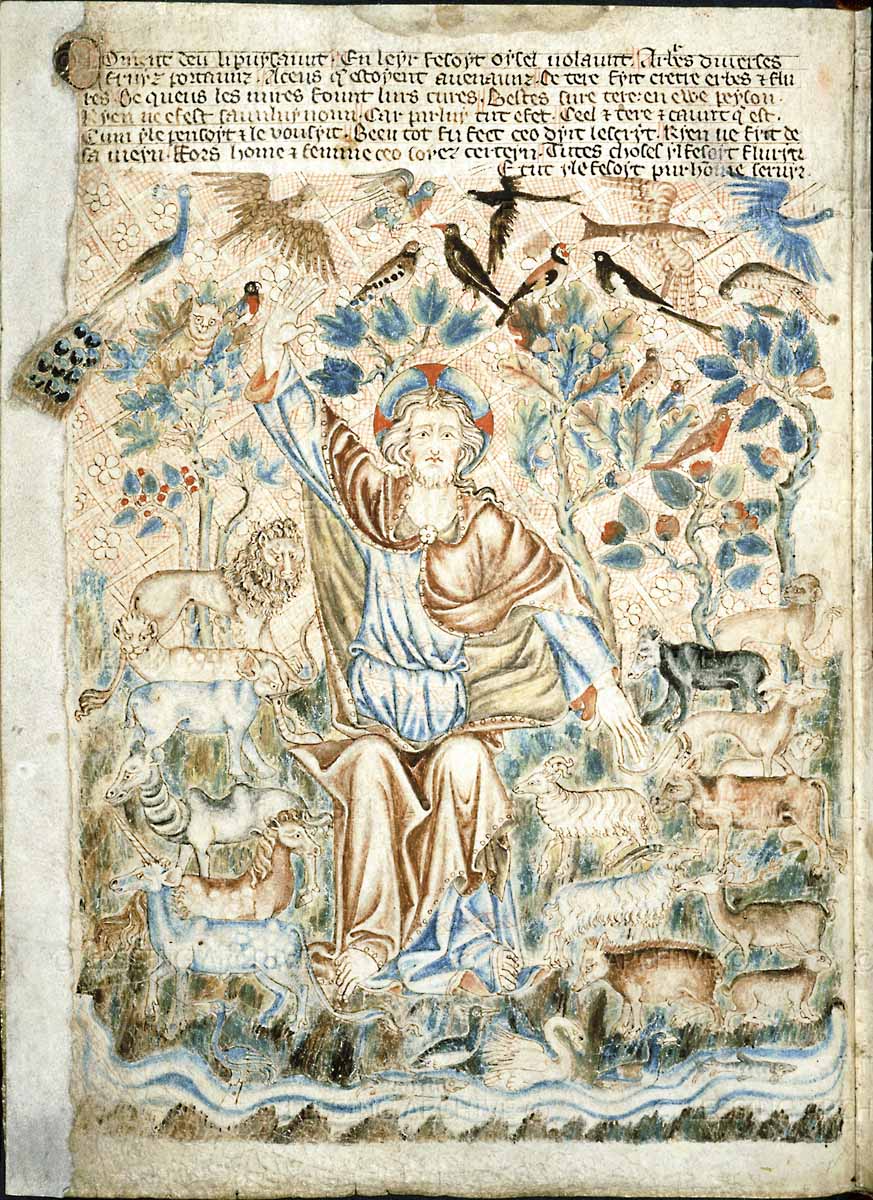 Coment deu li puysaunt . En leyr fesoyt oysel volaunt . Arbs diverses
fruyz portaunz . A ceus q estoyent avenaunz . De tere fyt cretre erbes & flu
res . De queus les mires fount lurs cures . Bestes sure tere : en ewe peyson .
Ryen ne efest saunz luy noun . Car pur luy tut e fet . Ceel & tere & taunt q est .
Cum yl le pensoyt & le voulsyt . Been tot fu feet ceo dyit lescryt . Ryen ne fyt de
sa meyn . Fors home & femme ceo soyez certeyn . Tutes choses yl fesoyt
E tut yl e fesoyt pur home servyr .